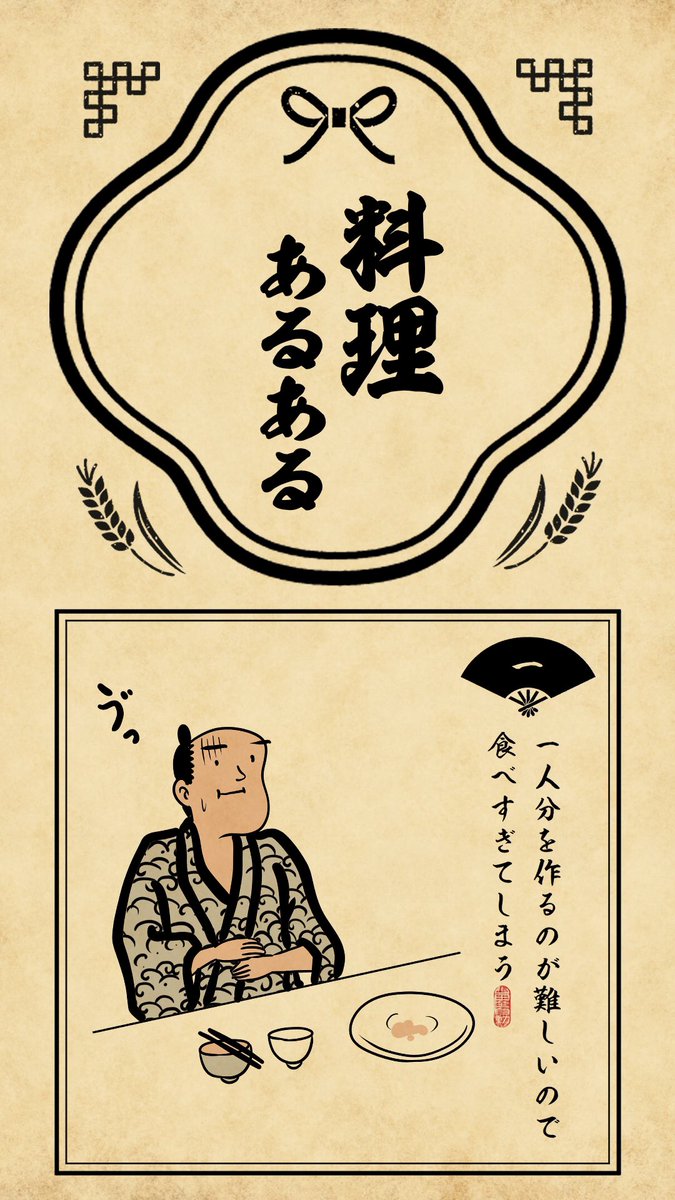 料理
あるある
一
一人分を作るのが難しいので
食べすぎてしまう
ゔっ